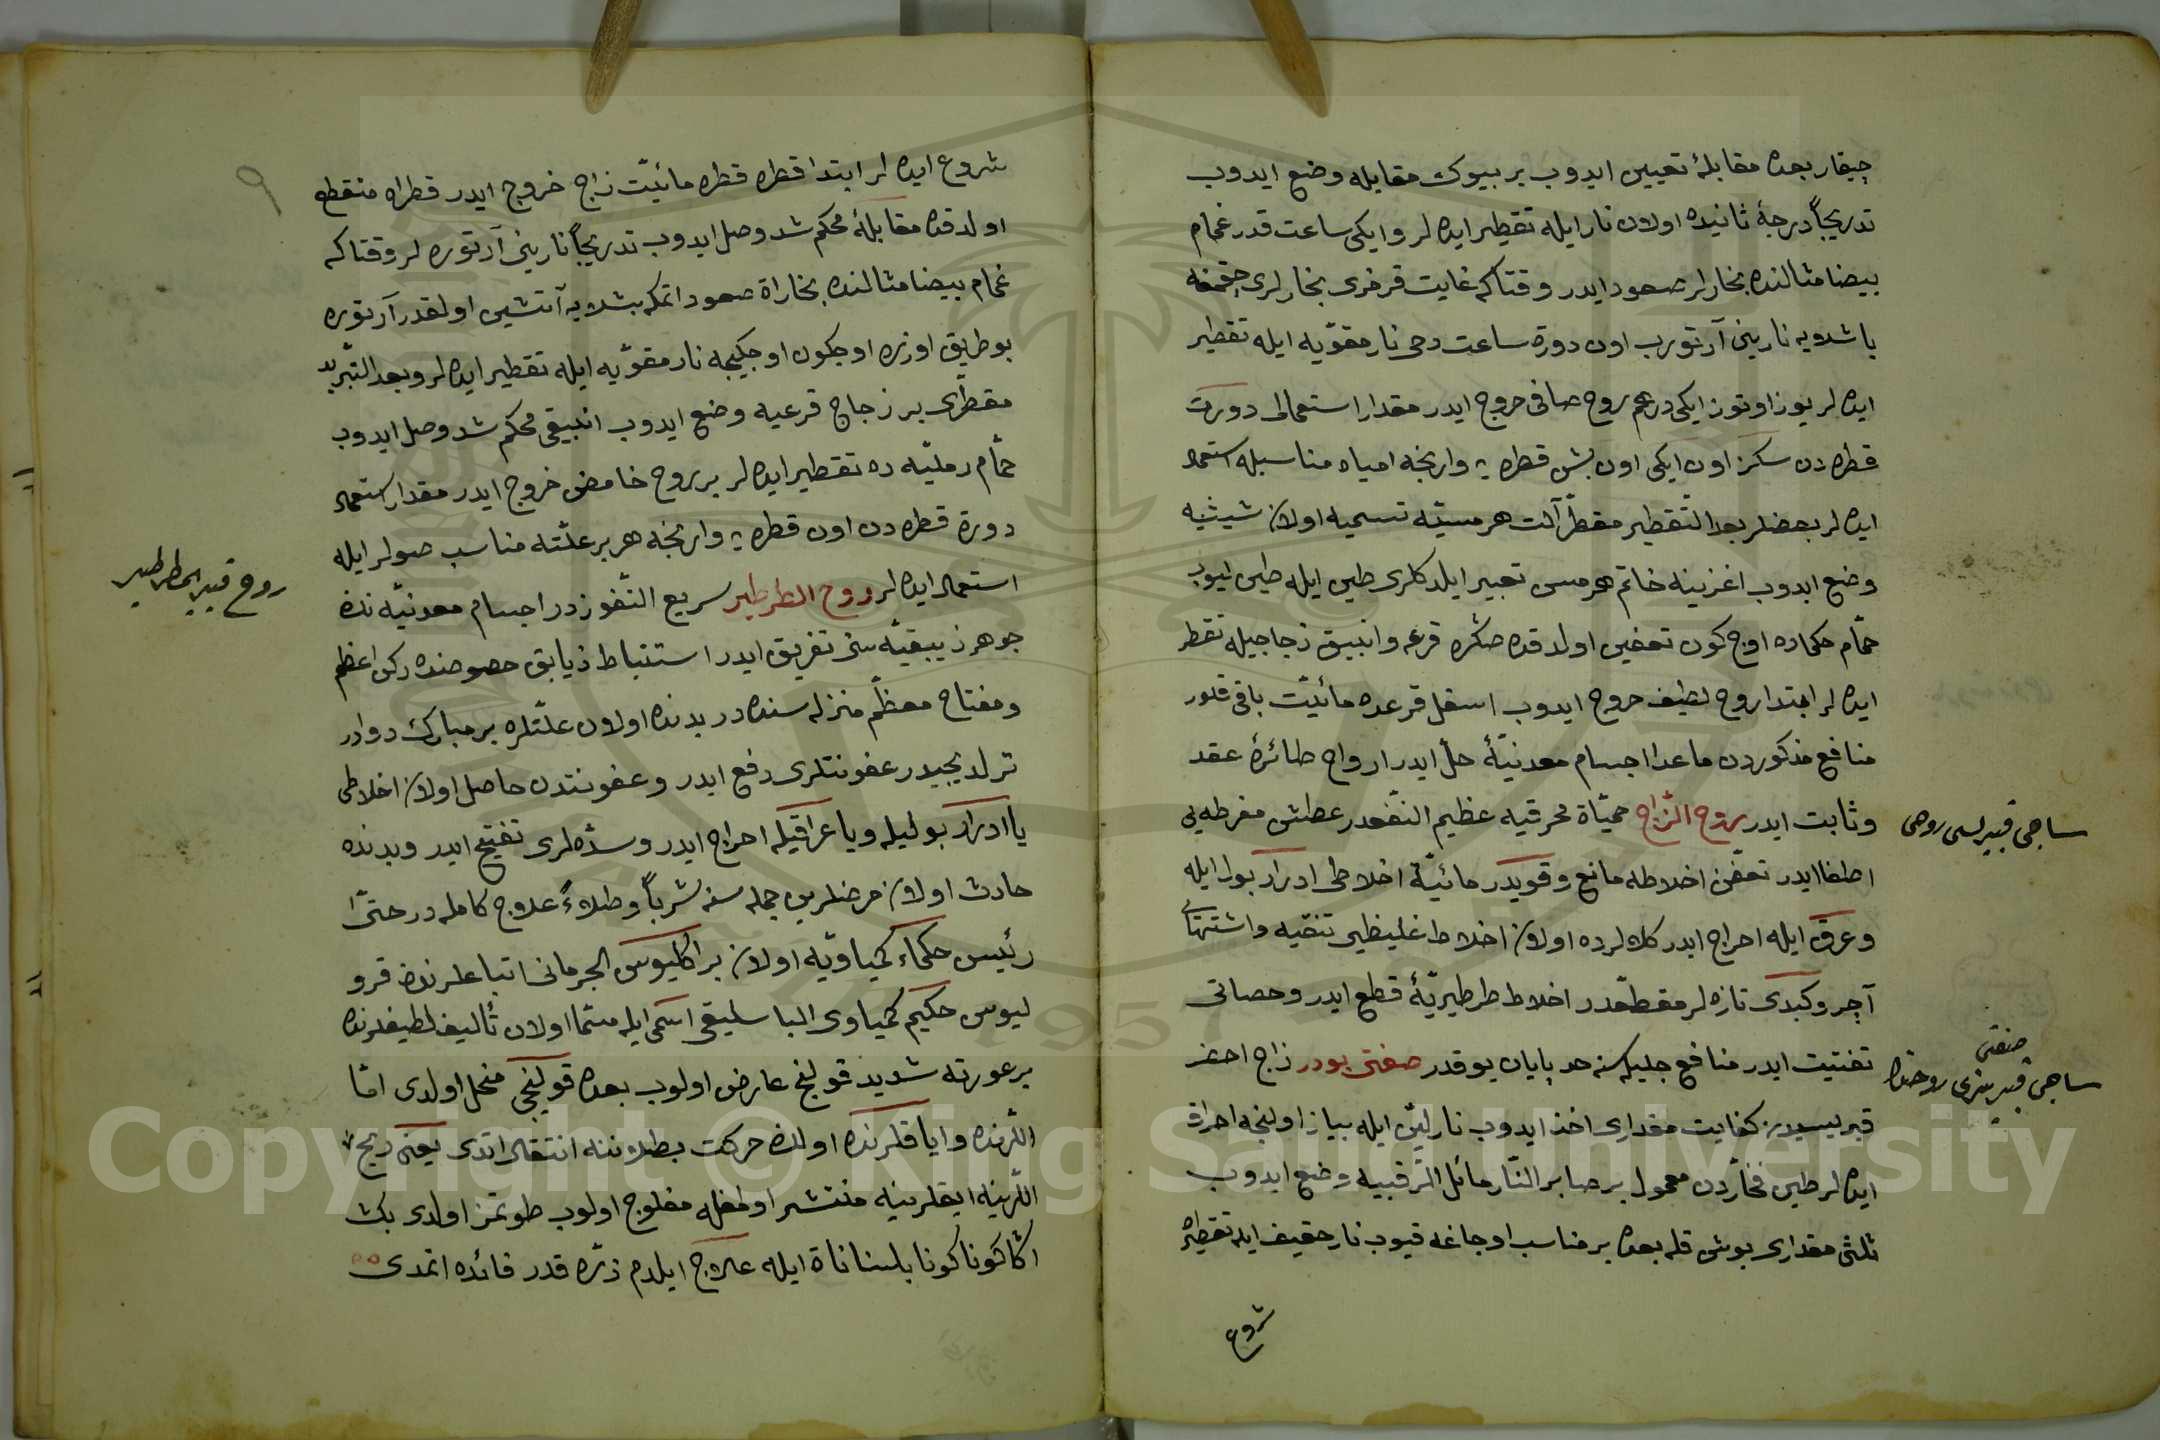 چیقار بعده مقابلۀ تعیین ایدوب بر بیوك مقابله وضع ایدوب
تدریجاً درجۀ ثانیده اولان نار ایله تقطیر ایده لر و ایکی ساعت قدر غمام
بیضا مثالنده بخارلر صعود ایدر وقتاکه غایت قرمزی بخارلری چقمغه
باشلدیه نارینی آرتورب اون دورت ساعت دخی نار مقوّیه ایله تقطیر
ایده لر یوز اوتوز ایکی درهم روح صافی خروج ایدر مقدار استعمالی دورت
قطره دن سکز اون ایکی اون بش قطره یه وارنجه امیاه مناسبله استعمال
ایده لر بعضلر بعد التّقطیر مقطّر آلت هرمسیّه تسمیه اولان شیشه
وضع ایدوب اغزینه خاتم هرمسی تعبیر ایلدکلری طین ایله طین لیوب
حمّام حکماده اوچ کون تعفین اولدقدن صکره قرعه و انبیق زجاجیله تقطیر
ایده لر ابتدا روح لطیف خروج ایدوب اسفل قرعده مائیّت باقی قلور
منافع مذکوردن ماعدا اجسام معدنیّۀ حلّ ایدر ارواح طائرۀ عقد
و ثابت ایدر روح الزّاج حمیّاة محرقیه عظیم النّفعدر عطش مفرطه یی
اطفا ایدر تعفّن اخلاطه مانع و قویدر مائیّة اخلاطی ادرار بول ایله
و عرق ایله اخراج ایدر کلالرده اولان اخلاط غلیظیی تنقیه و اشتهایی
آچر و کبدی تازه لر مقطّعدر اخلاط طرطیریّۀ قطع ایدر و حصاتی
تفتیت ایدر منافع جلیله سنه حد پایان یوقدر صفتی بودر زاج اخضر
قبریسیدن کفایت مقداری اخذ ایدوب نار لیّن ایله بیاز اولنجه احراق
ایده لر طین فخّاردن معمول بر صابر النّار مائل الرّقبیه وضع ایدوب
ثلثی مقداری بوش قله بعده بر مناسب اوجاغه قیوب نار خفیف ایله تقطیره
شروع
ساچی قبرسی روحی
صنعتی
ساچی قبرسی روحنڭ
شروع ایده لر ابتدا قطره قطره مائیّت زاج خروج ایدر قطراه منقطع
اولدقده مقابلۀ محکم شد وصل ایدوب تدریجاً نارینی آرتوره لر وقتاکه
غمام بیضا مثالنده بخاراة صعود اتمکه بشلدیه آتشین اولقدر آرتوره
بو طریق اوزره اوچکون اوچکیجه نار مقوّیه ایله تقطیر ایده لر و بعد التّبرید
مقطّری بر زجاج قرعیه وضع ایدوب انبیقی محکم شد وصل ایدوب
حمّام رملیّه ده تقطیر ایده لر بر روح خامض خروج ایدر مقدار استعمال
دورة قطره دن اون قطره یه وارنجه هر بر علّته مناسب صولر ایله
استعمال ایده لر روح الطرطیر سریع النّفوزدر اجسام معدنیّه نڭ
جوهر زیبقیّه سنی تفریق ایدر استنباط زیابق خصوصنده رکن اعظم
و مفتاح معظّم منزله سنده در بدنده اولان علّتلره بر مبارك دوادر
ترلدیجیدر عفونتلری دفع ایدر و عفونتدن حاصل اولان اخلاطی
یا ادرار بولیله و یا عراقیله اخراج ایدر و سدّه لری تفتیح ایدر و بدنده
حادث اولان مرضلرین جمله سنه شرباً و طلاءً علاج کامله در حتّی
رئیس حکماء کمیاویّه اولان براکلیوس الجرمانی اتباعلرندن قرو
لیوس حکیم کمیاوی الباسلیقی اسمی ایله مسمّا اولان تألیف لطیفلرنده
بر عورته شدید قولنج عارض اولوب بعده قولنجی منحل اولدی امّا
اللرنده و ایاقلرنده اولان حرکت بطلاننه انتقال اتدی یعنی ریح
اللرینه ایقلرینه منتشر اولمغله مفلوج اولوب طوتمز اولدی بن
اڭا کوناکونا بلساناة ایله علاج ایلدم ذرّه قدر فائده اتمدی
روح قبیر الطرطیر
٩
Copyright © King Saud University
1957